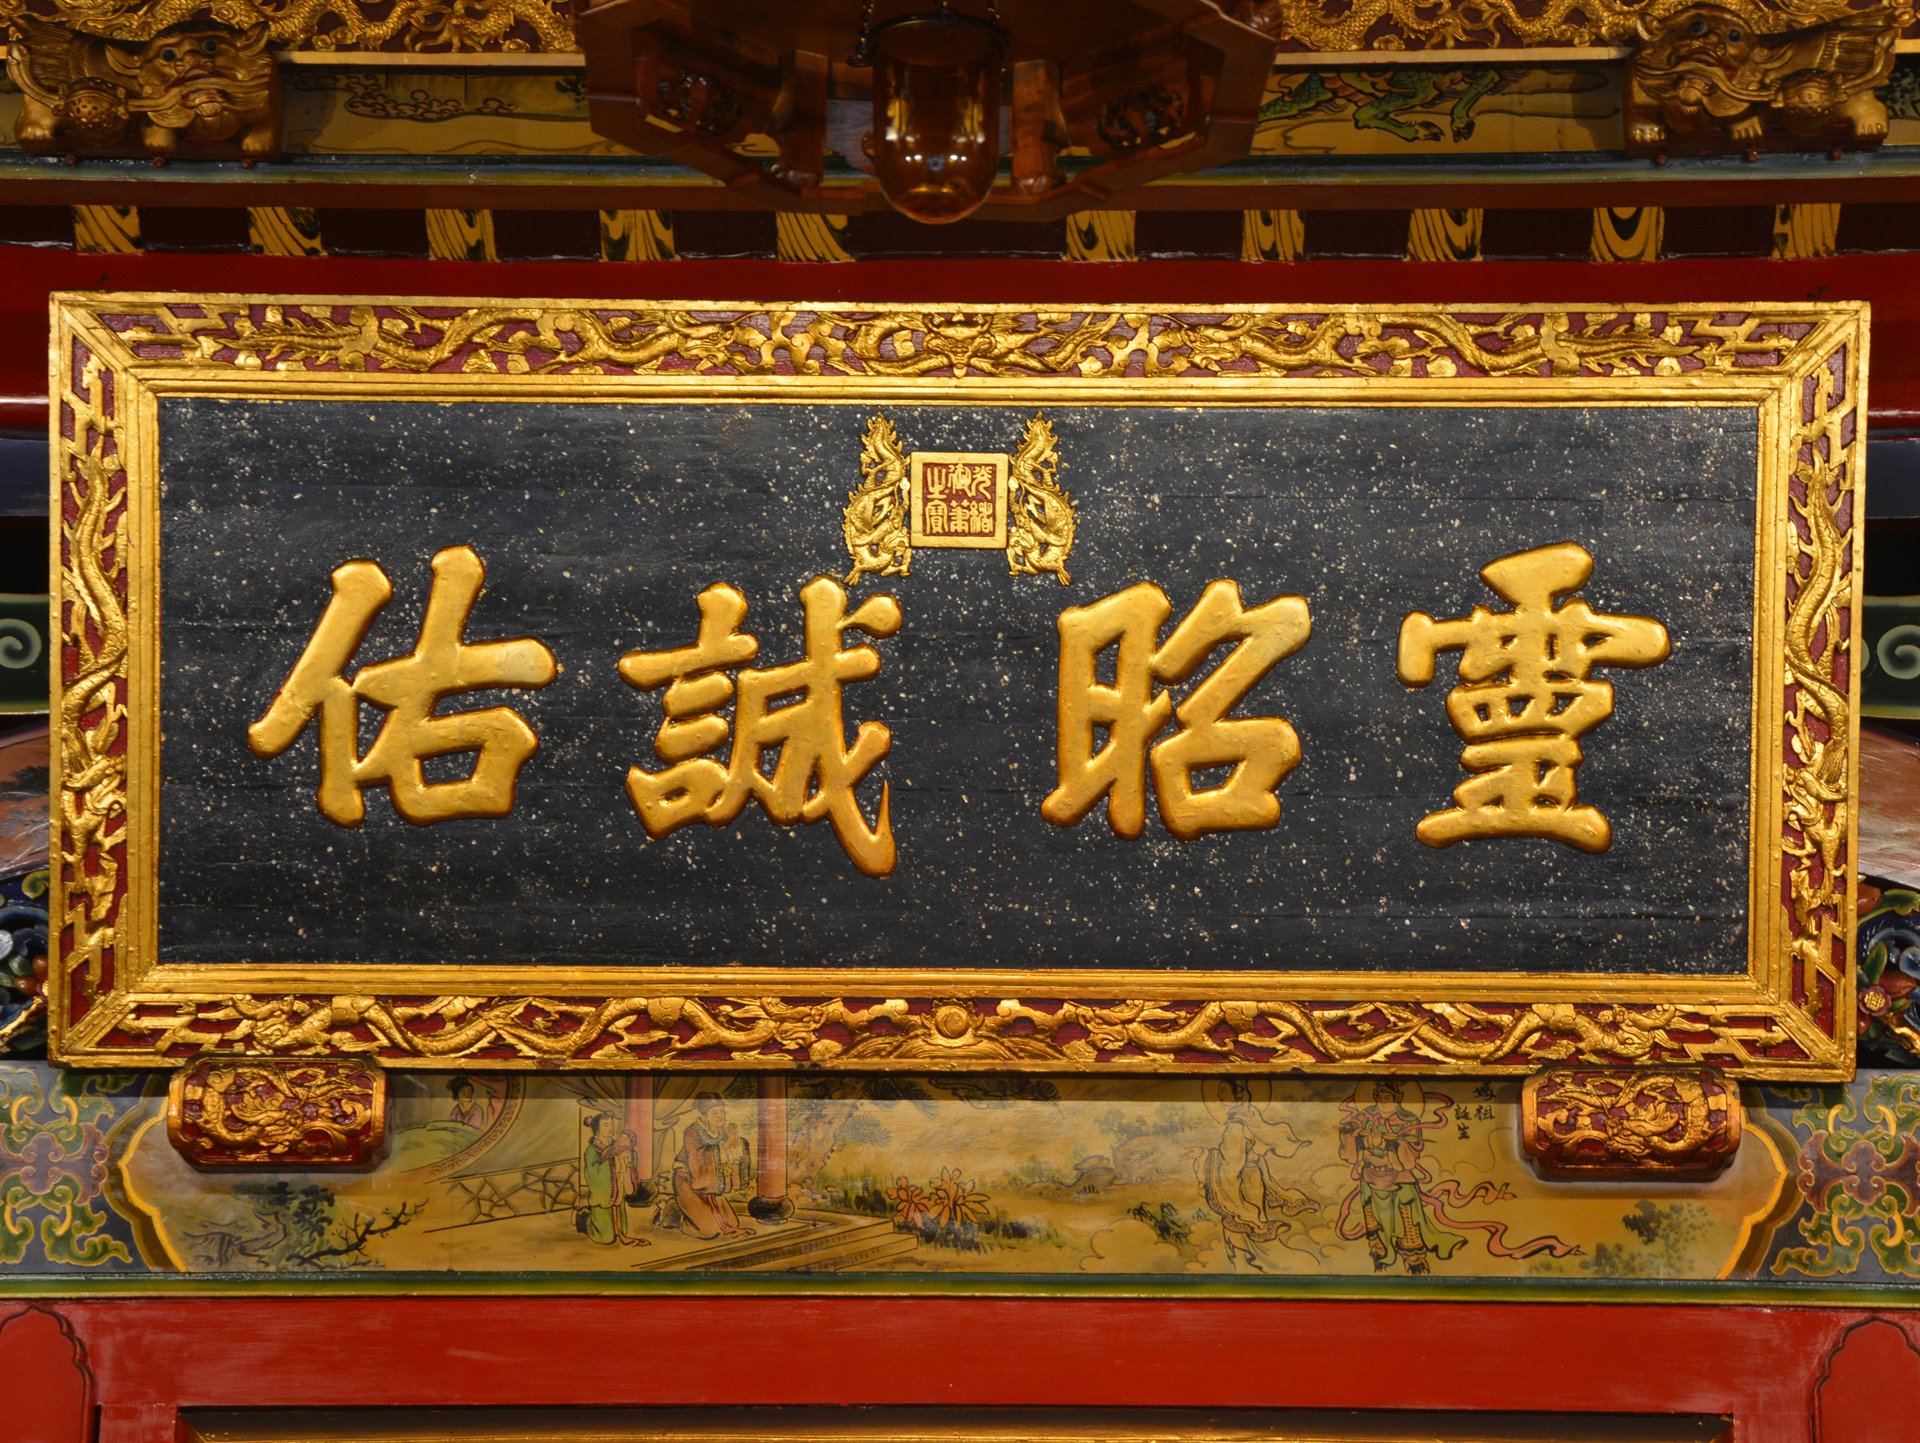 光緒
御筆
之寶
靈昭誠佑
媽祖
誕生